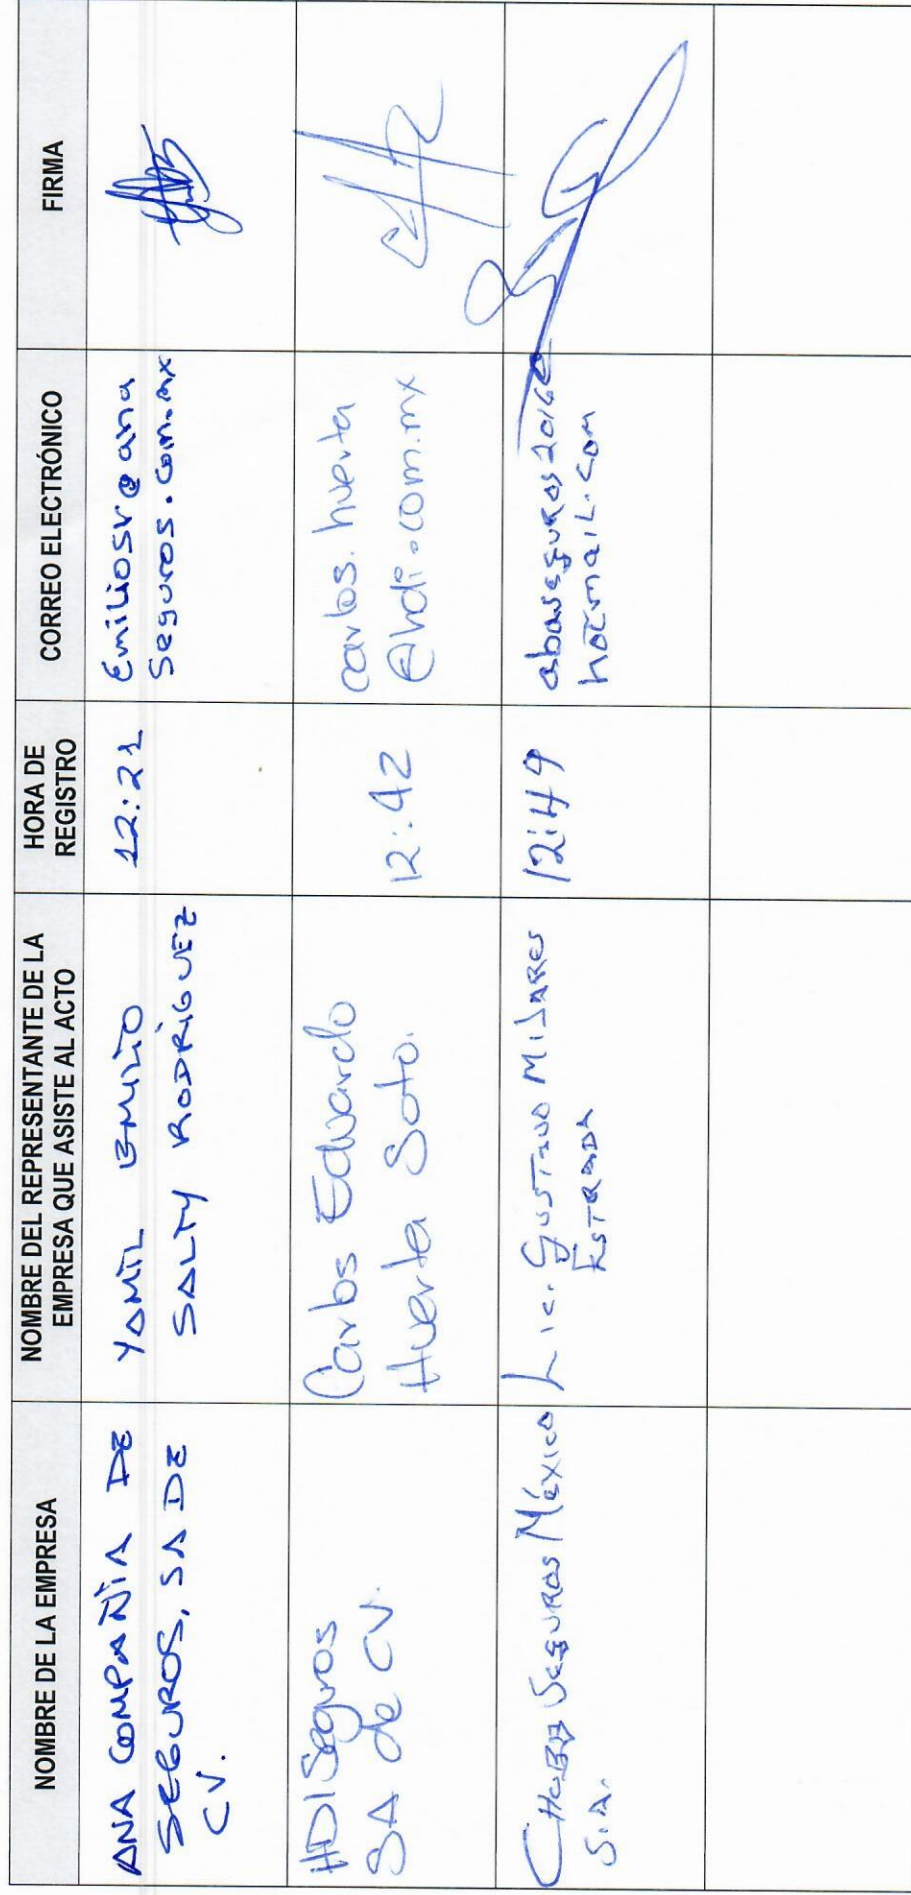 NOMBRE DE LA EMPRESA
NOMBRE DEL REPRESENTANTE DE LA
EMPRESA QUE ASISTE AL ACTO
HORA DE
REGISTRO
CORREO ELECTRÓNICO
FIRMA
ANA COMPAÑIA DE
SEGUROS, SA DE
CV.
YAMIL EMILIO
SALTY RODRIGUEZ
12:21
Emiliosr@ana
Seguros.com.mx
HDI Seguros
SA de CV.
Carlos Eduardo
Huerta Soto.
12:42
carlos.huerta
@hdi.com.mx
CHUBB SEGUROS México
S.A.
Lic. GUSTAVO MIJARES
ESTRADA
12:49
abaseguros2016@
hotmail.com